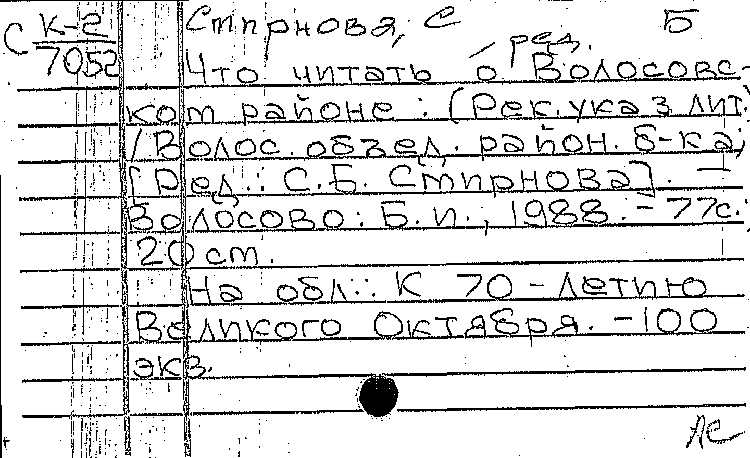 С К-2 Смирнова, С Б
7052 , ред.
Что читать о Волосовс-
ком районе: (Рек. указ лит.)
/ Волос. объед. район. б-ка;
[Ред.: С.Б. Смирнова]. —
Волосово: Б.и., 1988. - 77с.;
20 см.
На обл.: К 70-летию
Великого Октября. - 100
экз.